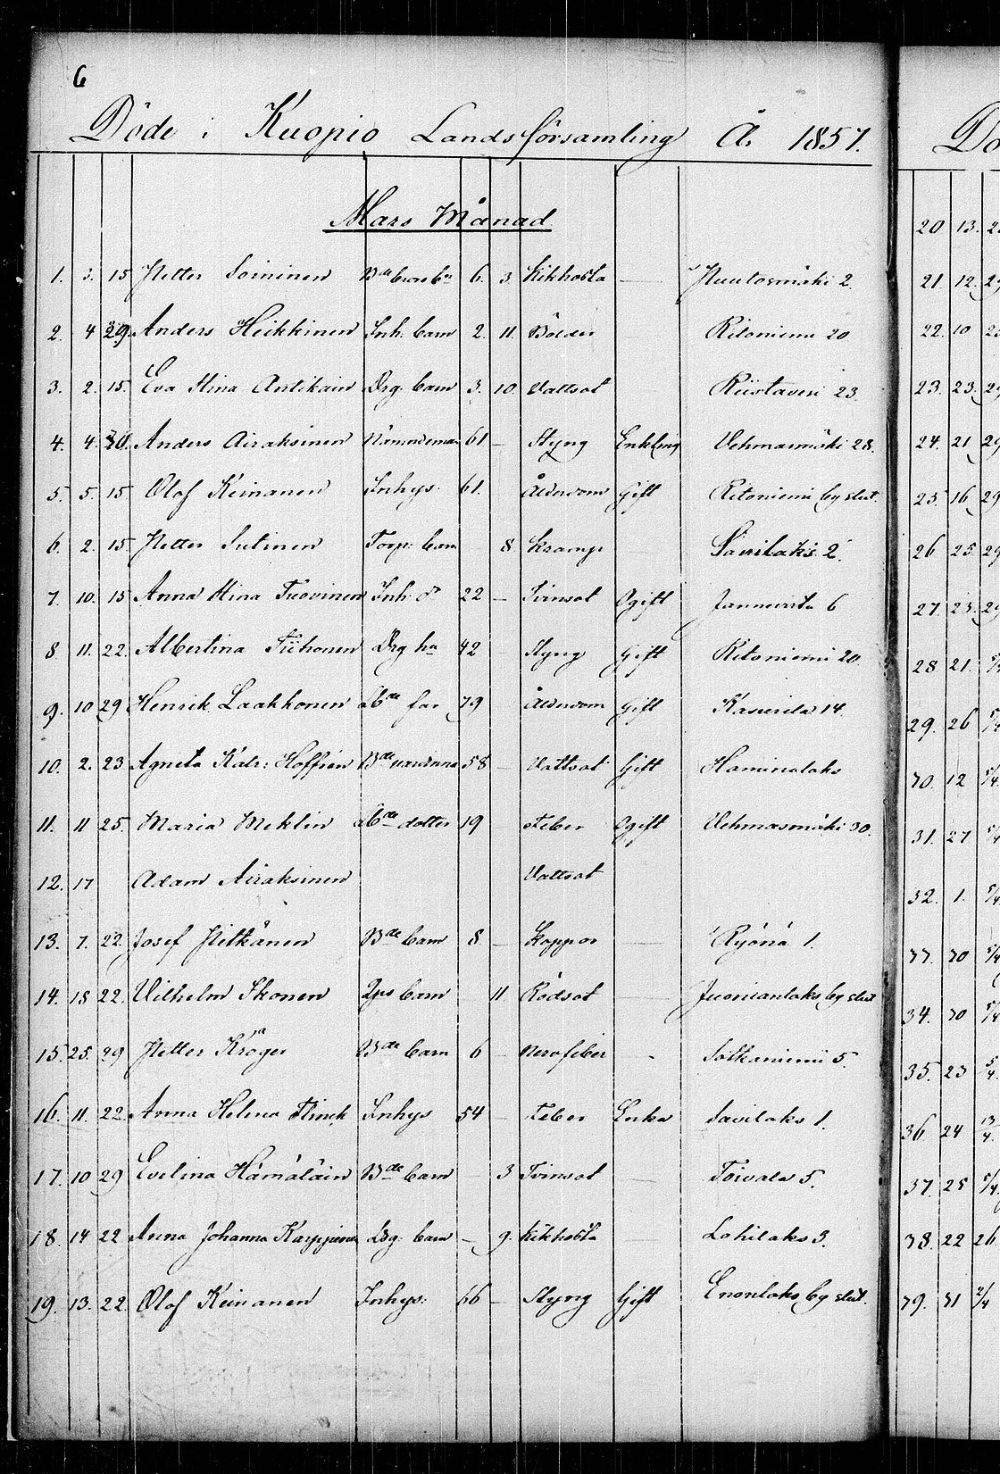 6
Döde i Kuopio Landsförsamling År 1857.
Mars Månad
1. 3. 15 Petter Soininen Bde 6. 3. Kikhosta — Puutosmäki 2.
2. 4 29. Anders Heikkinen Inh. barn 2. 11. Bölder Ritoniemi 20
3. 2. 15. Eva Stina Antikain Drg. barn 3. 10. Vattsot Riistavesi 23
4. 4. 30. Anders Airaksinen 61 — Styng Enkling Vehmasmäki 28.
5. 5. 15. Olof Keinanen Inhys. 61. Ålderdom Gift Ritoniemi by slut.
6. 2. 15. Petter Sutinen Torp. barn 8. Kramp Savilaks 2.
7. 10. 15 Anna Stina Tuovinen Inh. dr 22 — Tvinsot Ogift Jannevirta 6
8 11. 22. Albertina Tiihonen Drg ha 42 Styng Gift Ritoniemi 20.
9. 10 29 Henrik Laakkonen Åbde far 79 Ålderdom Gift Kasurila 14.
10. 2. 23 Agneta Katr: Hoffrén Bde värdinna 58 — Vattsot Gift Haminalaks
11. 11 25. Maria Meklin Åbde dotter 19 — Feber Ogift Vehmasmäki 30.
12. 17 Adam Airaksinen Vattsot
13. 7. 22. Josef Pitkänen Bde barn 8 — Koppor — Ryönä 1.
14. 18 22. Vilhelm Ikonen barn 11. Rödsot — by slut
15. 25. 29 Petter Kröger Bde barn 6 — Nervfeber - Sotkaniemi 5.
16. 11. 22. Anna Helena Flinck Inhys 54 — Feber Enka Savilaks 1.
17. 10 29 Evelina Hämäläin Bde barn 3 Tvinsot — Toivala 5.
18. 14 22 Anna Johanna Karppinen Drg. barn — 9. Kikhosta — Lohilaks 3.
19. 13. 22. Olof Keinanen Inhys. 66 — Styng Gift Enonlaks by slut.
Dö
20 13.
21 12.
22. 10
23. 23.
24. 21
25. 16 29
26 25. 29
27. 23.
28 21.
29. 26
30. 12
31. 27
32. 1.
33. 30
34. 30
35. 23
36 24 13/4.
37. 25
38. 22 26
39. 31 2/4